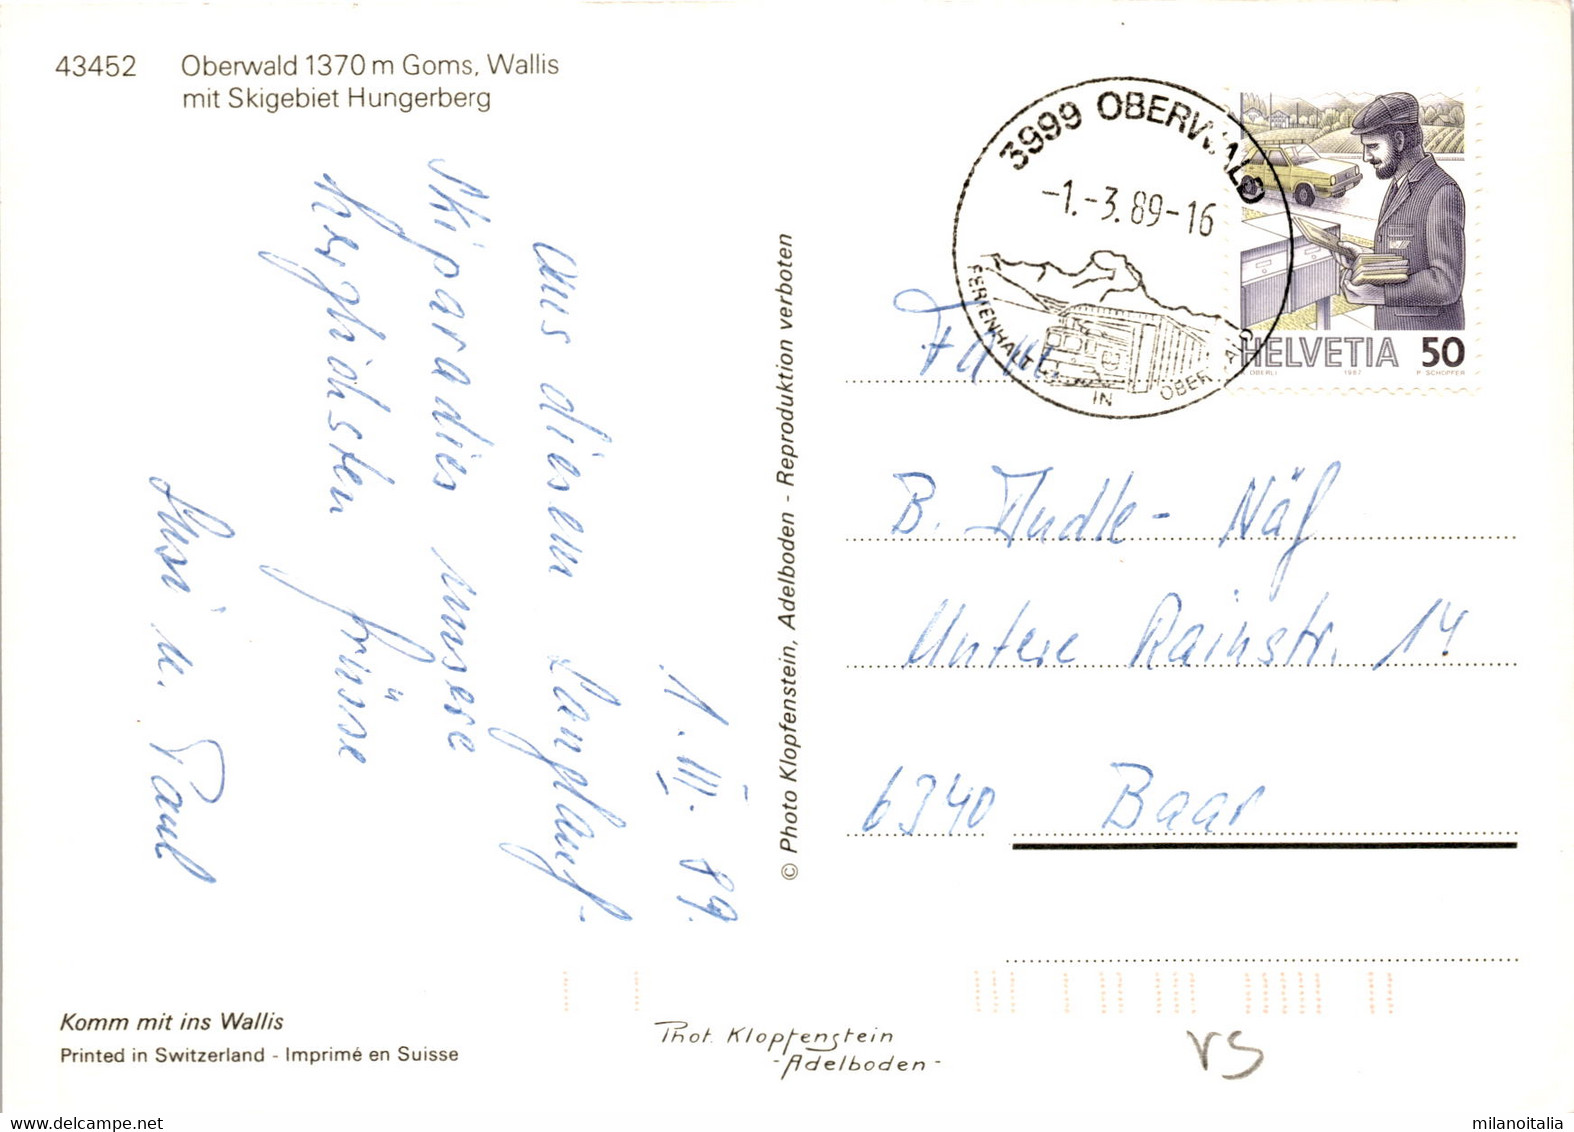 43452 Oberwald 1370 m Goms, Wallis
mit Skigebiet Hungerberg
1. III. 89.
Aus diesem Langlauf-
Skiparadies unsere
herzlichsten Grüsse
Susi u. Paul
© Photo Klopfenstein, Adelboden - Reproduktion verboten
3999 OBERWALD
-1.-3.89-16
FERIENHALT IN OBERWALD
HELVETIA 50
OBERLI 1987 P. SCHOPFER
Fam.
B. Näf
Untere Rainstr. 14
6340 Baar
Komm mit ins Wallis
Printed in Switzerland - Imprimé en Suisse
Phot. Klopfenstein
- Adelboden -
VS
milanoitalia